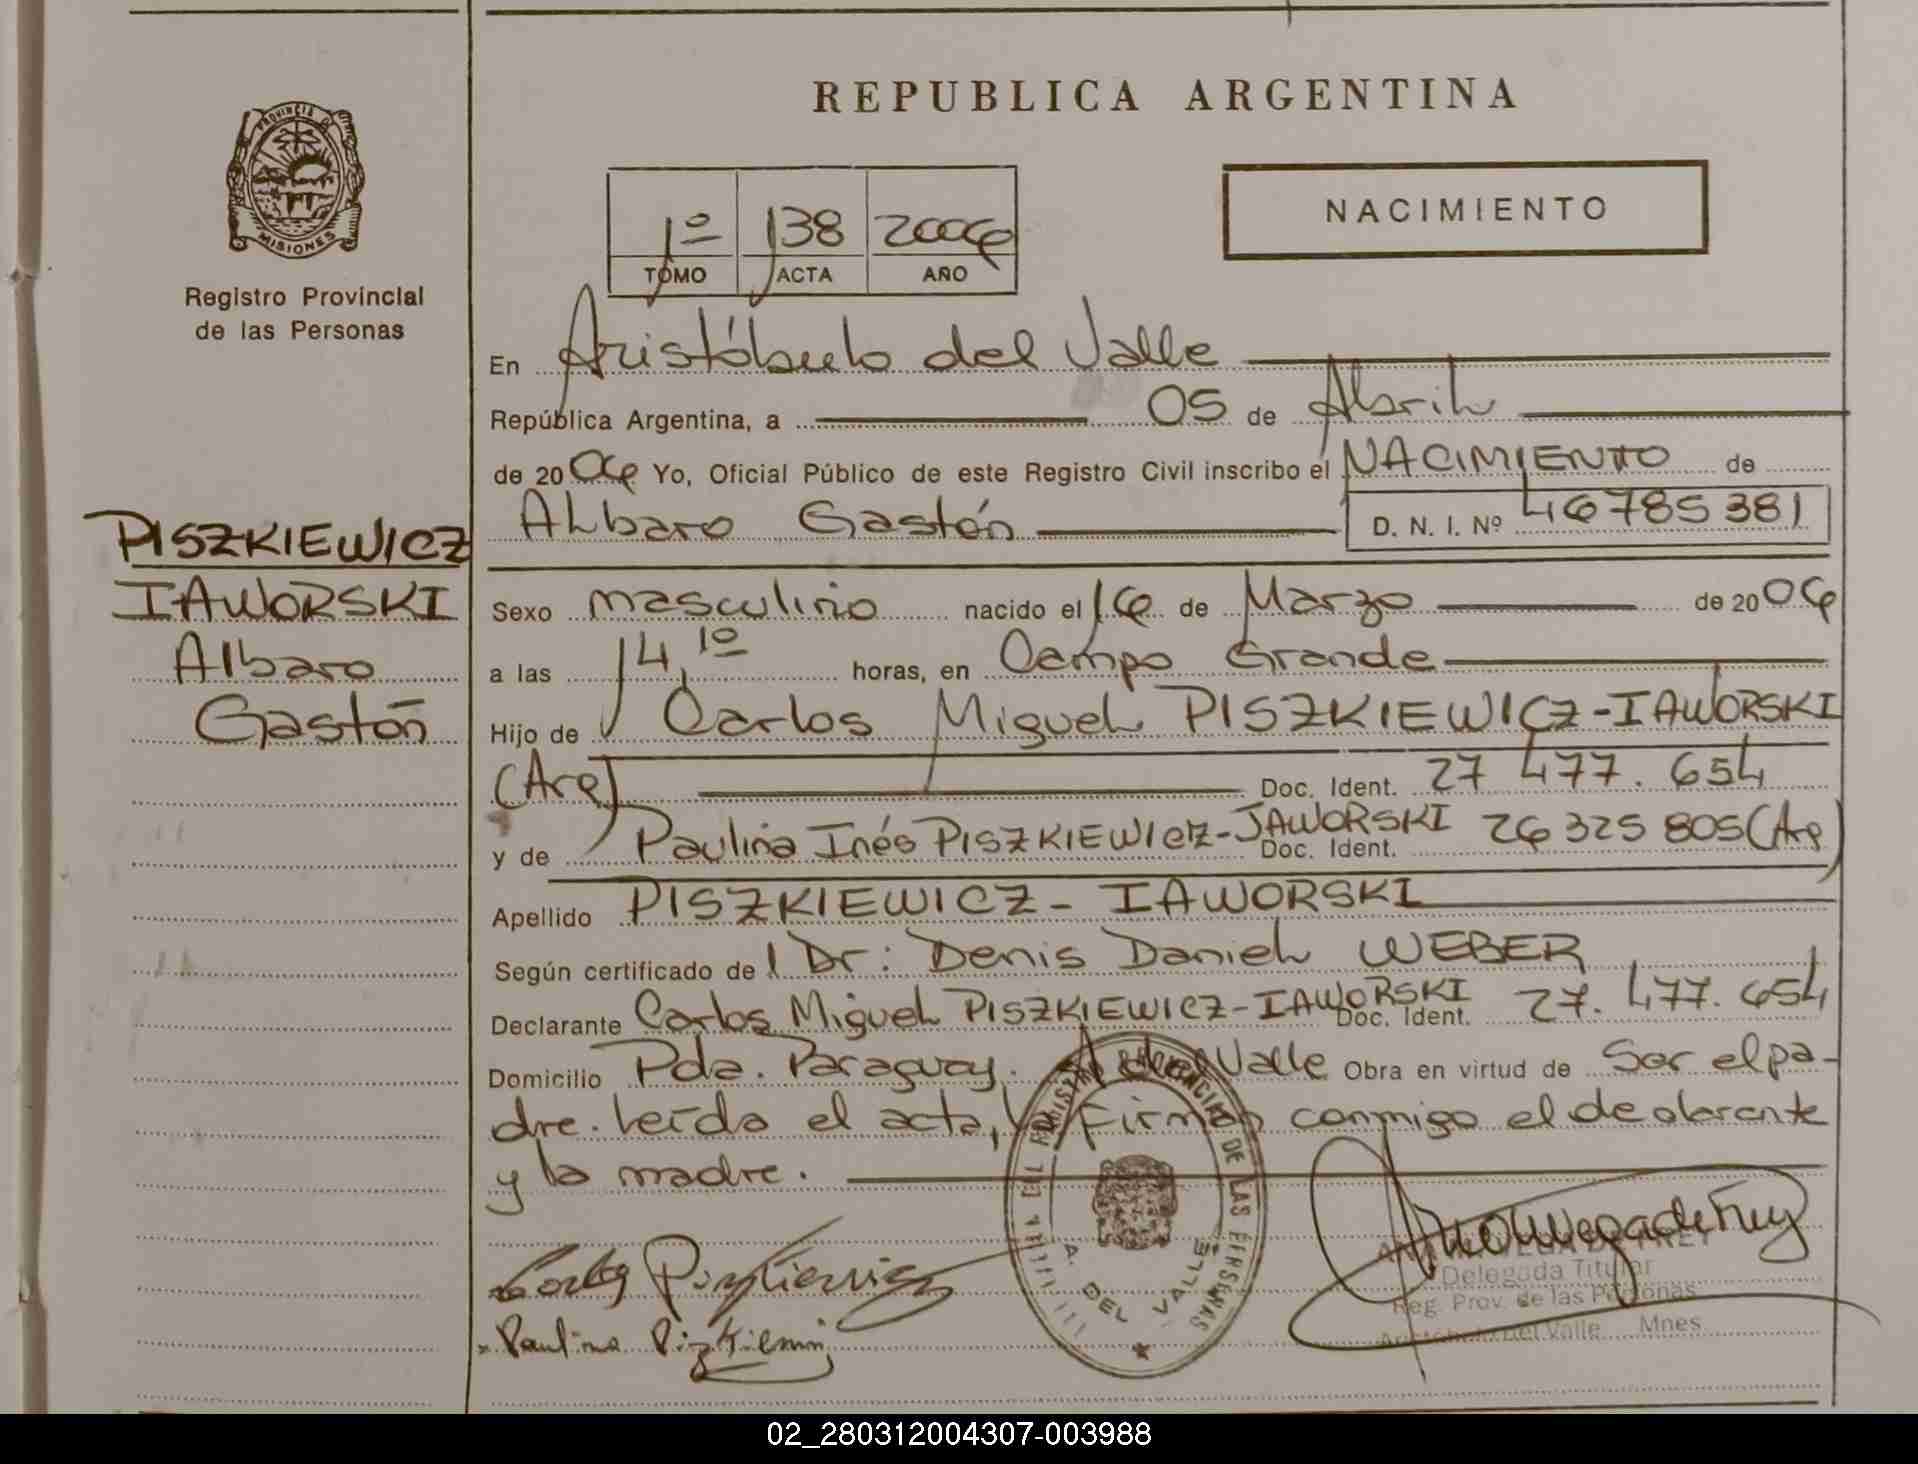 REPUBLICA ARGENTINA
PROVINCIA DE
MISIONES
Registro Provincial
de las Personas
1º 138 2006
TOMO ACTA AÑO
NACIMIENTO
En Aristóbulo del Valle
República Argentina, a 05 de Abril
de 2006 Yo, Oficial Público de este Registro Civil inscribo el NACIMIENTO de
Albaro Gastón D. N. I. Nº 46785381
PISZKIEWICZ
IAWORSKI
Albaro
Gastón
Sexo masculino nacido el 16 de Marzo de 2006
a las 14,10 horas, en Campo Grande
Hijo de Carlos Miguel PISZKIEWICZ-IAWORSKI
(Arg) Doc. Ident. 27 477. 654
y de Paulina Inés PISZKIEWICZ-JAWORSKI Doc. Ident. 26 325 805 (Arg)
Apellido PISZKIEWICZ - IAWORSKI
Según certificado de Dr: Denis Daniel WEBER
Declarante Carlos Miguel PISZKIEWICZ-IAWORSKI Doc. Ident. 27. 477. 654
Domicilio Pda. Paraguay. A del Valle Obra en virtud de Ser el pa-
dre. Leída el acta, Firman conmigo el declarante
y la madre.
DE LAS PERSONAS
A. DEL VALLE
Paulina
Delegada Titular
Reg. Prov. de las Personas
Aristóbulo Del Valle Mnes
02_280312004307-003988